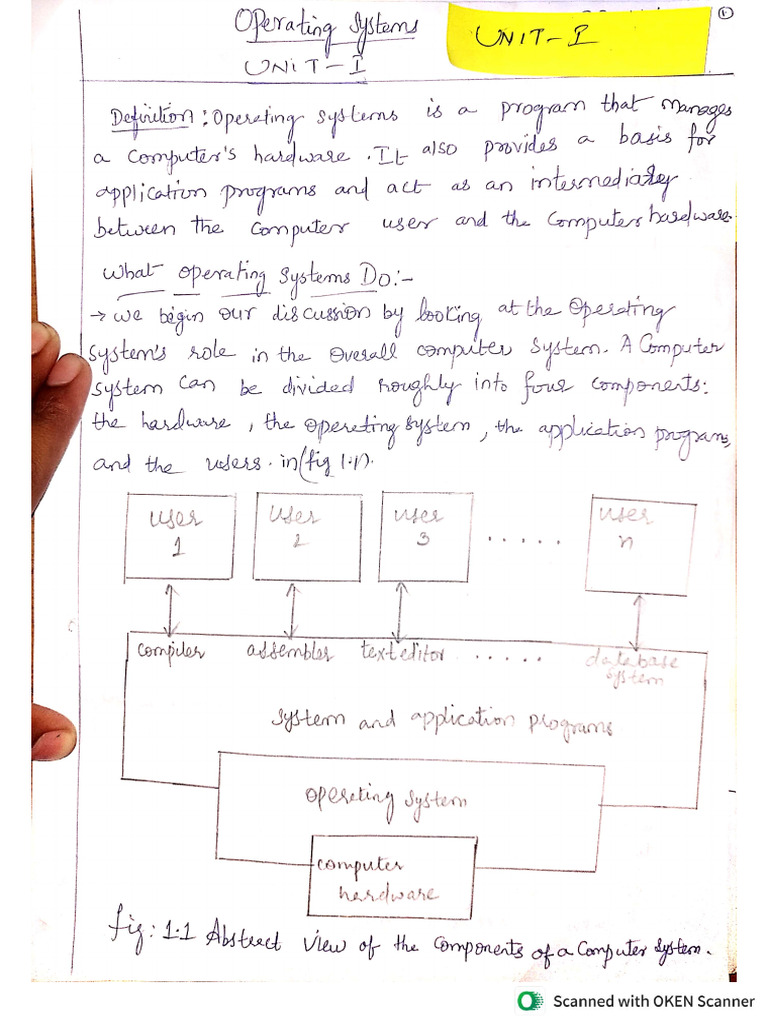 Operating Systems
UNIT-I
UNIT-I
1
Definition: Operating systems is a program that manages
a computer's hardware. It also provides a basis for
application programs and act as an intermediary
between the computer user and the computer hardware.
What operating systems Do:-
→ we begin our discussion by looking at the operating
system's role in the overall computer system. A computer
system can be divided roughly into four components:
the hardware, the operating system, the application programs,
and the users. in(fig 1.1).
user user user ..... user
1 2 3 n
compiler assembler text editor ..... database
system
system and application programs
operating system
computer
hardware
fig: 1.1 Abstract view of the components of a computer system.
Scanned with OKEN Scanner